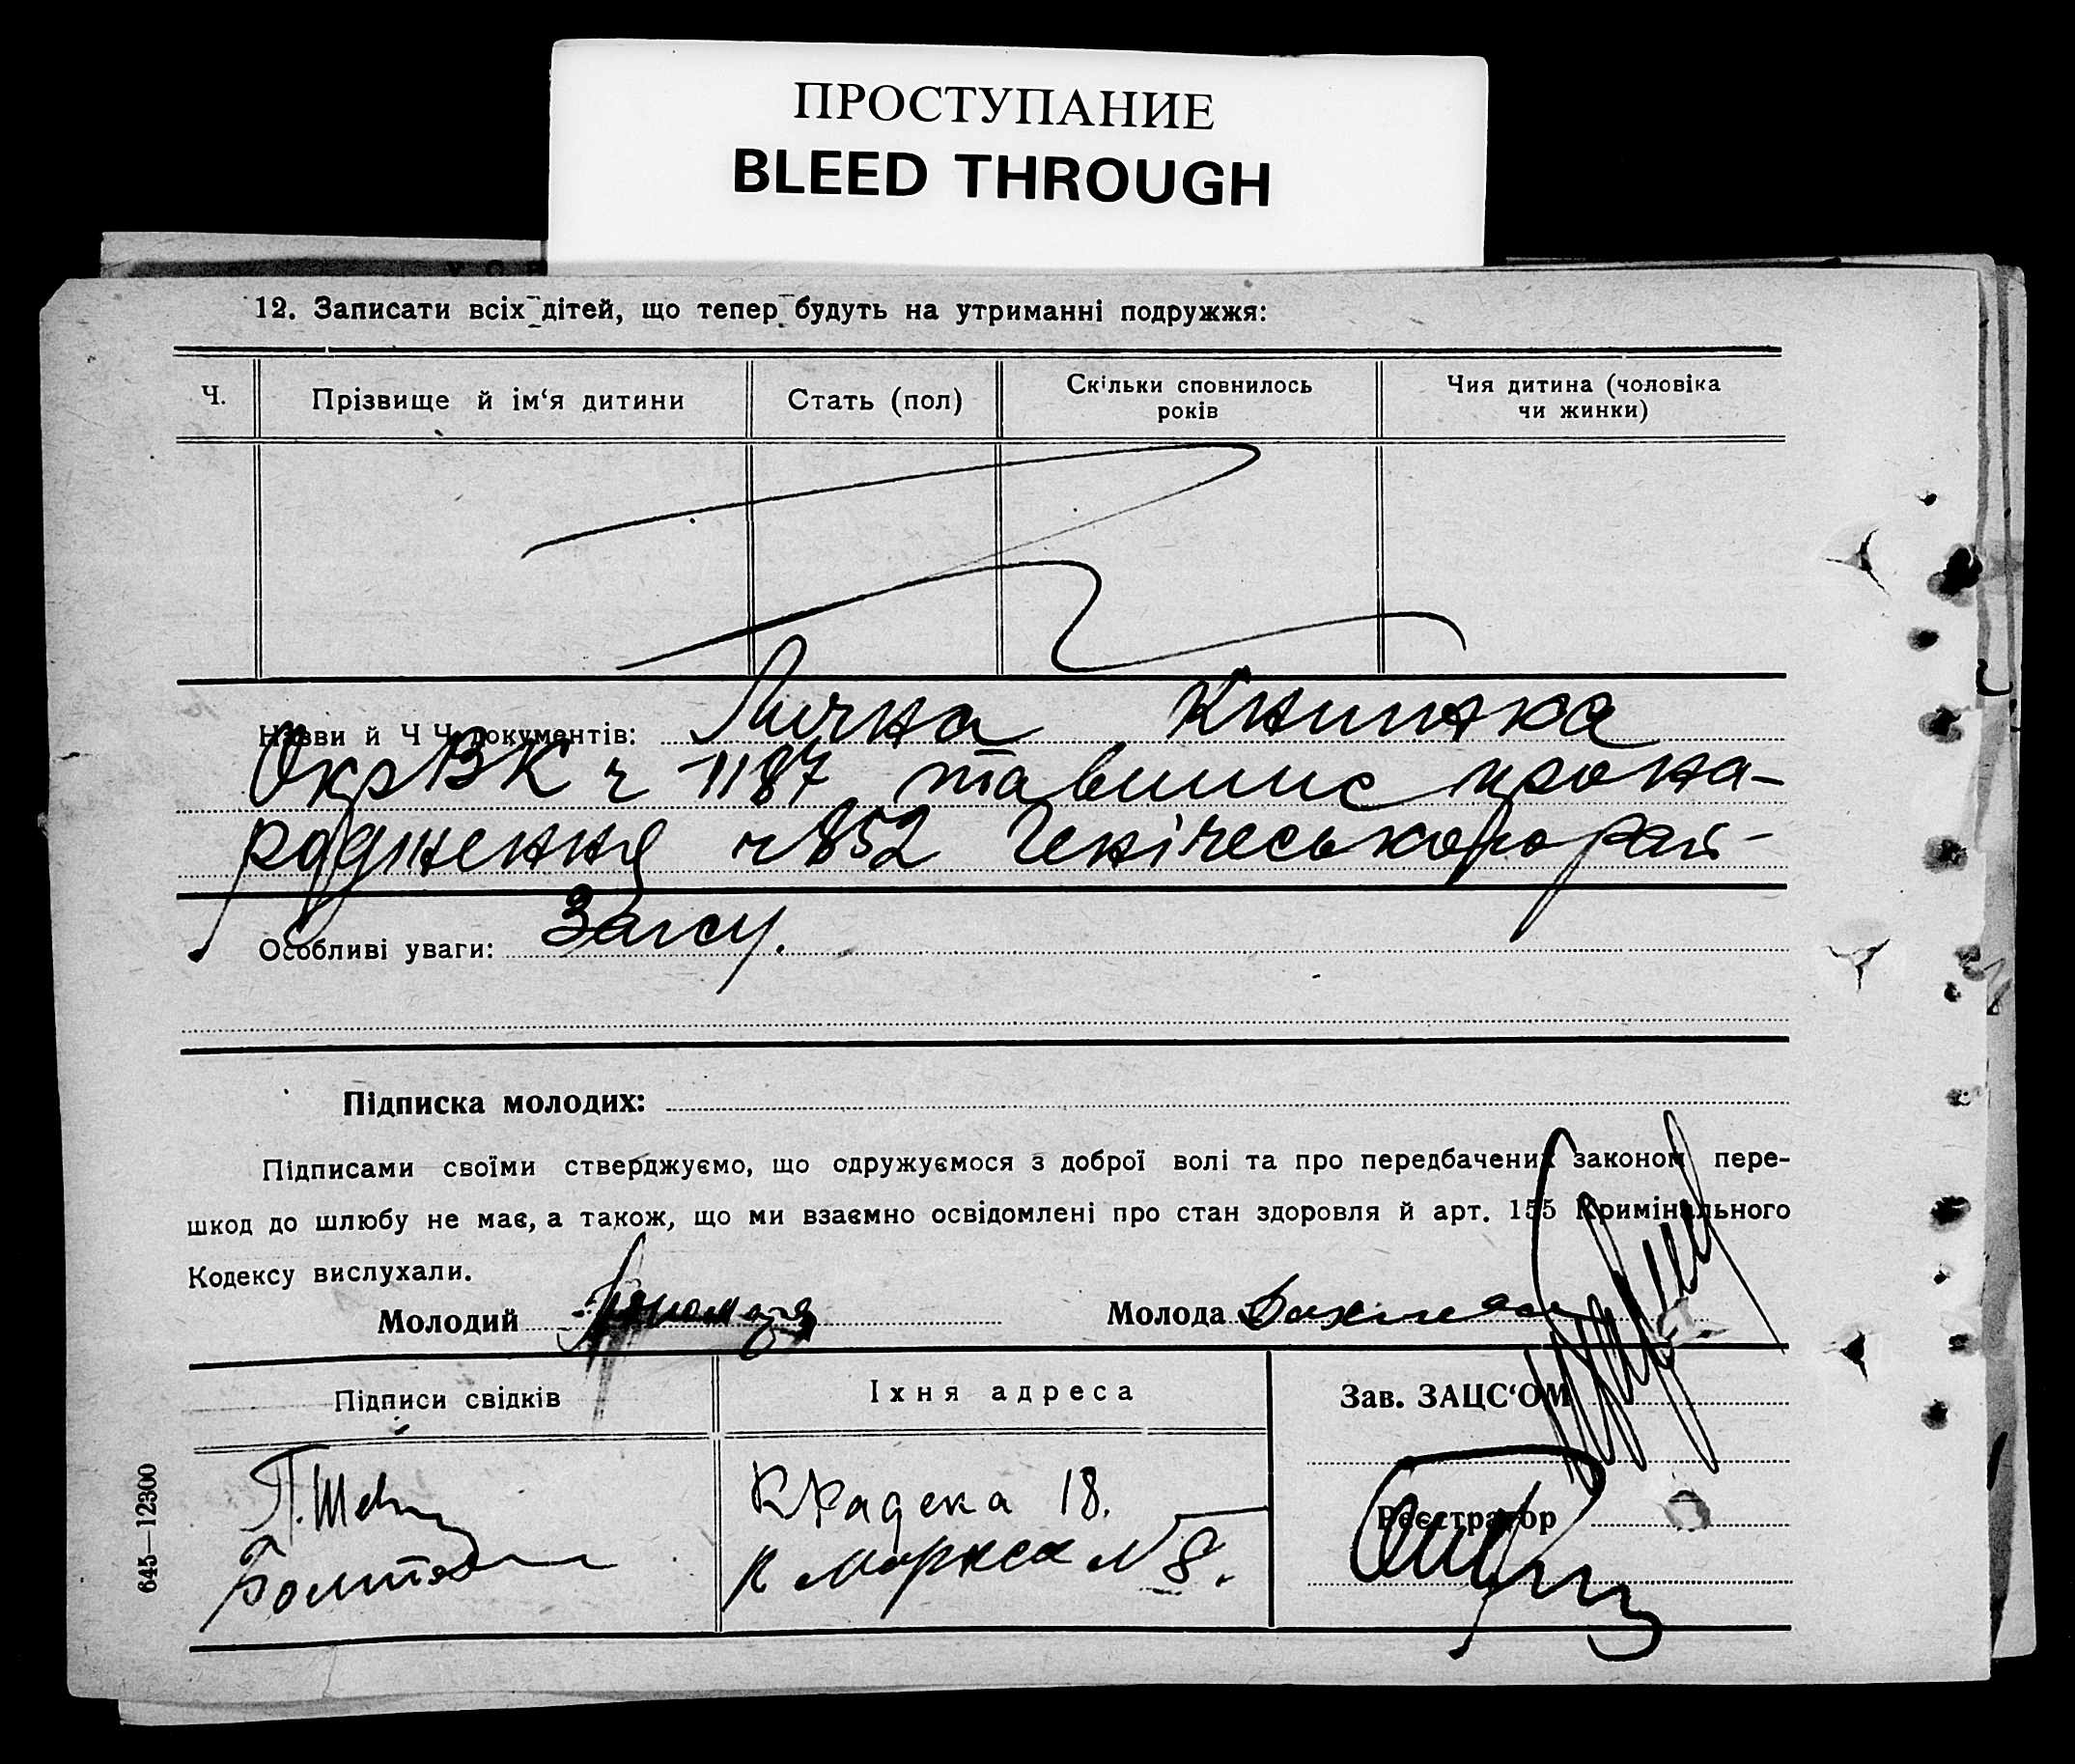 ПРОСТУПАНИЕ
BLEED THROUGH
12. Записати всіх дітей, що тепер будуть на утриманні подружжя:
Ч.
Прізвище й ім‘я дитини
Стать (пол)
Скільки сповнилось
років
Чия дитина (чоловіка
чи жинки)
Назви й Ч Ч документів: Лична Книжка
ОкрВК ч 1187 та випис про на-
родження ч 852 Генічеського рай-
Загсу.
Особливі уваги:
Підписка молодих:
Підписами своїми стверджуємо, що одружуємося з доброї волі та про передбачених законом пере-
шкод до шлюбу не має, а також, що ми взаємно освідомлені про стан здоровля й арт. 155 Кримінального
Кодексу вислухали.
Молодий
Молода
Підписи свідків
Їхня адреса
Зав. ЗАЦС‘ОМ
П. Шев
18.
К Маркса N 8.
Реєстратор
645—12300